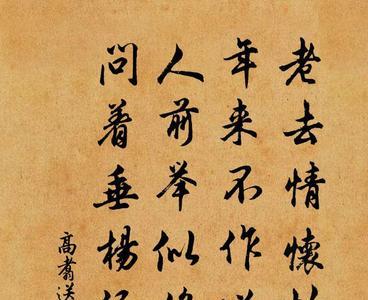 老去情懷
年来不作
人前举似
問着垂楊
高翥送